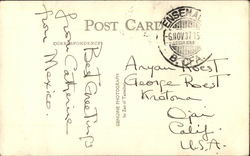 POST CARD
CORRESPONDENCE
Best Greetings
from Catherine
from Mexico.
GENUINE PHOTOGRAPH
ENSENADA
6 NOV 37
B. C.
Aryan Roest
George Roest
Krotona
Ojai
Calif.
U.S.A.